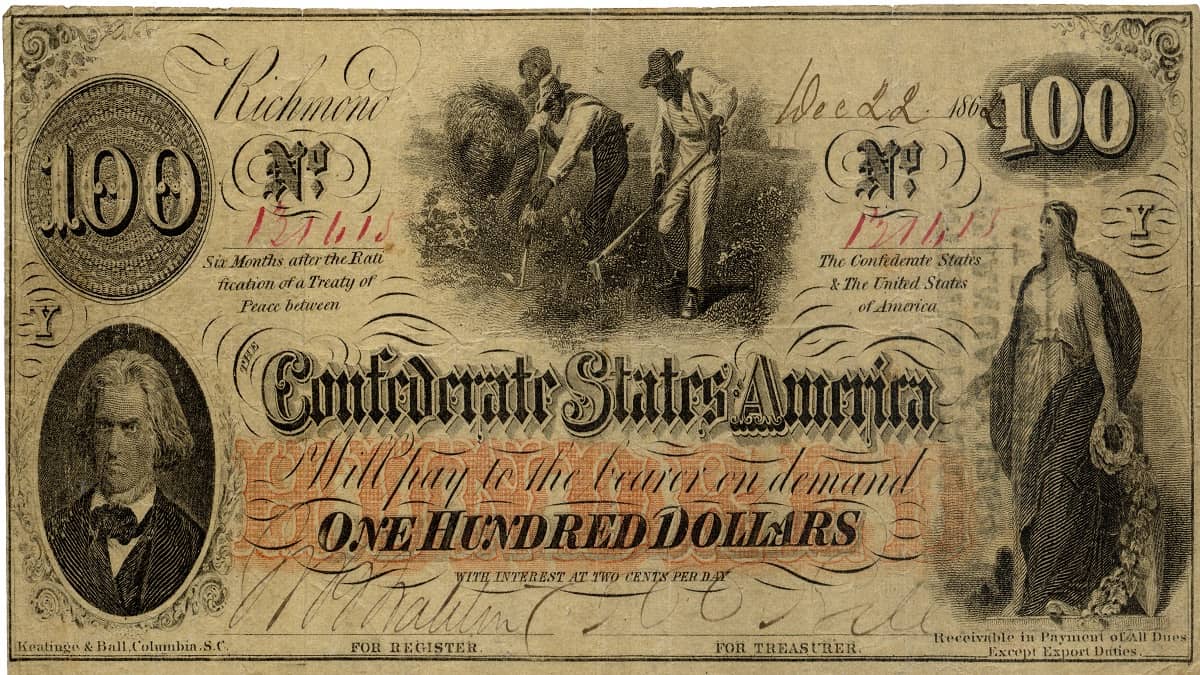 Richmond
Dec 22 1862
100
100
No
No
Six Months after the Rati
fication of a Treaty of
Peace between
The Confederate States
& The United States
of America
Y
Y
THE
Confederate States America
Will pay to the bearer on demand
HUNDRED
ONE HUNDRED DOLLARS
WITH INTEREST AT TWO CENTS PER DAY
Keatinge & Ball, Columbia. S.C.
FOR REGISTER.
FOR TREASURER.
Receivable in Payment of All Dues
Except Export Duties.